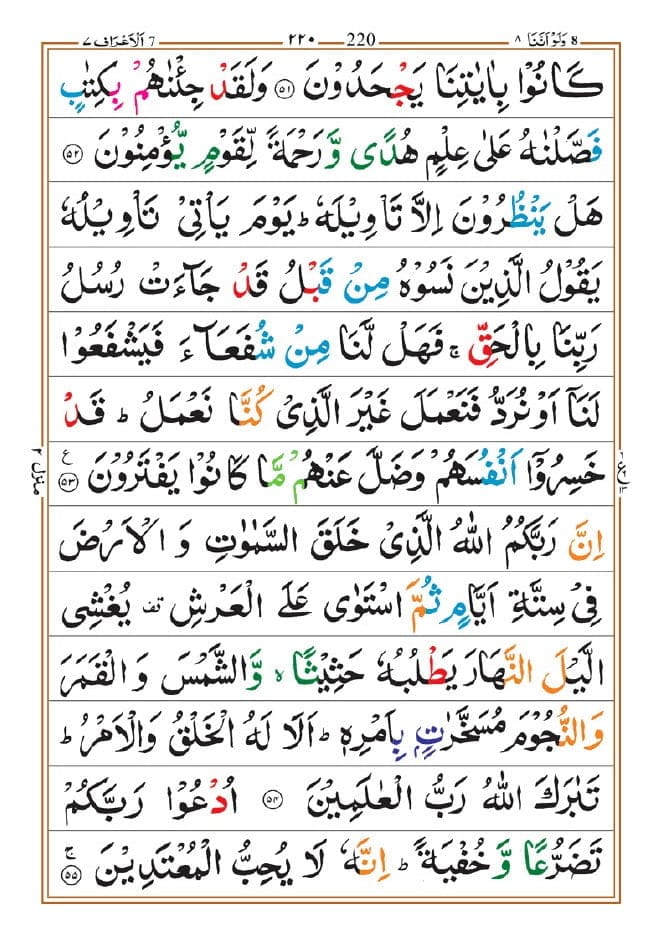 8 وَلَوْ اَنَّنَا ٨ 220 ٢٢٠ 7 اَلْاَعْرَاف ٧
كَانُوْا بِاٰيٰتِنَا يَجْحَدُوْنَ ۝٥١ وَلَقَدْ جِئْنٰهُمْ بِكِتٰبٍ
فَصَّلْنٰهُ عَلٰى عِلْمٍ هُدًى وَّ رَحْمَةً لِّقَوْمٍ يُّؤْمِنُوْنَ ۝٥٢
هَلْ يَنْظُرُوْنَ اِلَّا تَاْوِيْلَهٗ ؕ يَوْمَ يَاْتِيْ تَاْوِيْلُهٗ
يَقُوْلُ الَّذِيْنَ نَسُوْهُ مِنْ قَبْلُ قَدْ جَآءَتْ رُسُلُ
رَبِّنَا بِالْحَقِّ ۚ فَهَلْ لَّنَا مِنْ شُفَعَآءَ فَيَشْفَعُوْا
لَنَاۤ اَوْ نُرَدُّ فَنَعْمَلَ غَيْرَ الَّذِيْ كُنَّا نَعْمَلُ ؕ قَدْ
خَسِرُوْۤا اَنْفُسَهُمْ وَضَلَّ عَنْهُمْ مَّا كَانُوْا يَفْتَرُوْنَ ۝٥٣ ع
منزل ٢
اِنَّ رَبَّكُمُ اللّٰهُ الَّذِيْ خَلَقَ السَّمٰوٰتِ وَ الْاَرْضَ
فِيْ سِتَّةِ اَيَّامٍ ثُمَّ اسْتَوٰى عَلَى الْعَرْشِ قف يُغْشِى
الَّيْلَ النَّهَارَ يَطْلُبُهٗ حَثِيْثًا ۙ وَّ الشَّمْسَ وَ الْقَمَرَ
وَالنُّجُوْمَ مُسَخَّرٰتٍۭ بِاَمْرِهٖ ؕ اَلَا لَهُ الْخَلْقُ وَالْاَمْرُ ؕ
تَبٰرَكَ اللّٰهُ رَبُّ الْعٰلَمِيْنَ ۝٥٤ اُدْعُوْا رَبَّكُمْ
تَضَرُّعًا وَّ خُفْيَةً ؕ اِنَّهٗ لَا يُحِبُّ الْمُعْتَدِيْنَ ۝٥٥ ج